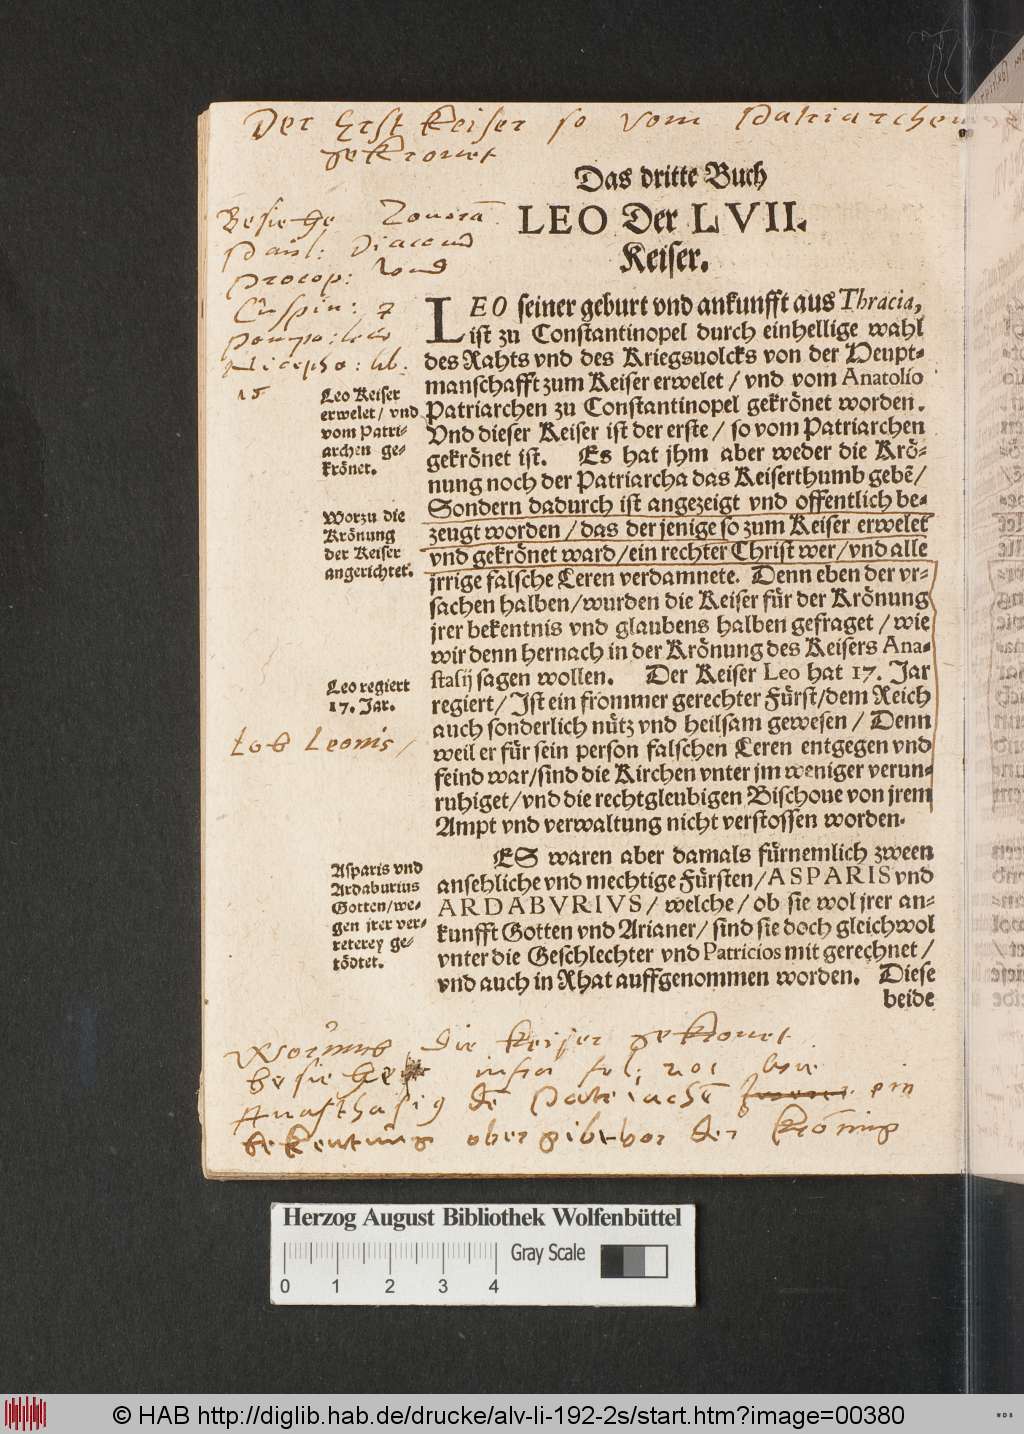 Der Erst Keiser so vom Patriarchen
gekronet
Das dritte Buch
LEO Der LVII.
Keiser.
Besiehe Zonora
Paul: Diacon
Procop:
Cuspin:
Pompo: Leto
Nicepho: lib:
15
LEO seiner geburt vnd ankunfft aus Thracia,
ist zu Constantinopel durch einhellige wahl
des Rahts vnd des Kriegsuolcks von der Heupt-
manschafft zum Keiser erwelet / vnd vom Anatolio
Patriarchen zu Constantinopel gekrönet worden.
Vnd dieser Keiser ist der erste / so vom Patriarchen
gekrönet ist. Es hat jhm aber weder die Krö-
nung noch der Patriarcha das Keiserthumb gebẽ /
Sondern dadurch ist angezeigt vnd offentlich be-
zeugt worden / das der jenige so zum Keiser erwelet
vnd gekrönet ward / ein rechter Christ wer / vnd alle
jrrige falsche Leren verdamnete. Denn eben der vr-
sachen halben / wurden die Keiser für der Krönung
jrer bekentnis vnd glaubens halben gefraget / wie
wir denn hernach in der Krönung des Keisers Ana-
stasij sagen wollen. Der Keiser Leo hat 17. Jar
regiert / Ist ein frommer gerechter Fürst / dem Reich
auch sonderlich nütz vnd heilsam gewesen / Denn
weil er für sein person falschen Leren entgegen vnd
feind war / sind die Kirchen vnter jm weniger verun-
ruhiget / vnd die rechtgleubigen Bischoue von jrem
Ampt vnd verwaltung nicht verstossen worden.
Leo Keiser
erwelet / vnd
vom Patri-
archen ge-
krönet.
Worzu die
Krönung
der Keiser
angerichtet.
Leo regiert
17. Jar.
Lob Leonis /
ES waren aber damals fürnemlich zween
ansehliche vnd mechtige Fürsten / ASPARIS vnd
ARDABVRIVS / welche / ob sie wol jrer an-
kunfft Gotten vnd Arianer / sind sie doch gleichwol
vnter die Geschlechter vnd Patricios mit gerechnet /
vnd auch in Rhat auffgenommen worden. Diese
beide
Asparis vnd
Ardaburius
Gotten / we-
gen jrer ver-
reterey ge-
tödtet.
Worumb die Keiser gekronet
besiehe infra fol: 201
Anasthasig dẽ Patriachẽ ein
bekentnus ober gibt vor der Kronung
Herzog August Bibliothek Wolfenbüttel
Gray Scale
0 1 2 3 4
© HAB http://diglib.hab.de/drucke/alv-li-192-2s/start.htm?image=00380